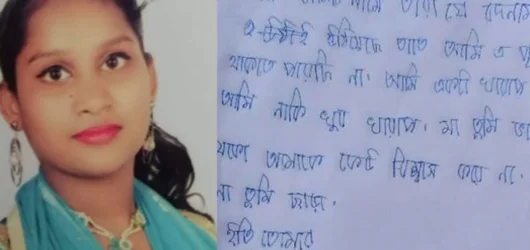 নামে তারা যে বদনাম
তাতে আমি এ
থাকতে পারছি না। আমি একটা খারাপ
আমি নাকি খুব খারাপ। মা তুমি
থেকো আমাকে কেউ বিশ্বাস করে না।
তুমি ছাড়া।
ইতি তোমার